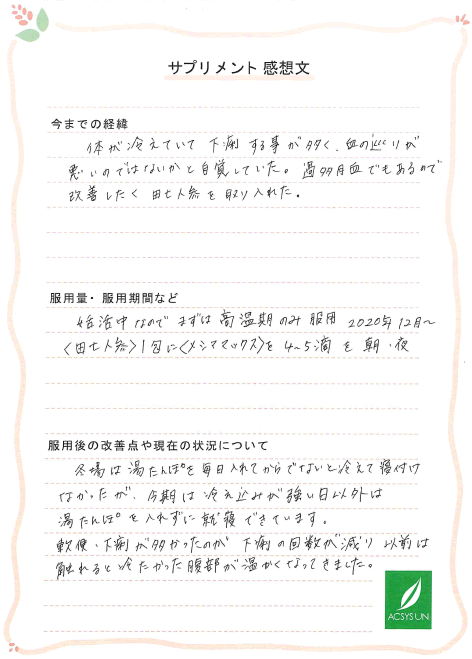 サプリメント 感想文
今までの経緯
体が冷えていて 下痢する事が多く、血の巡りが
悪いのではないかと自覚していた。過多月血でもあるので
改善したく 田七人参を取り入れた。
服用量・服用期間など
妊活中なので まずは高温期のみ服用 2020年12月〜
〈田七人参〉1包に〈メシママックス〉を 4〜5滴 を 朝・夜
服用後の改善点や現在の状況について
冬場は湯たんぽを毎日入れてからでないと冷えて寝付け
なかったが、今期は冷え込みが強い日以外は
湯たんぽを入れずに就寝できています。
軟便・下痢が多かったのが 下痢の回数が減り 以前は
触れると冷たかった腹部が温かくなってきました。
ACSYSUN